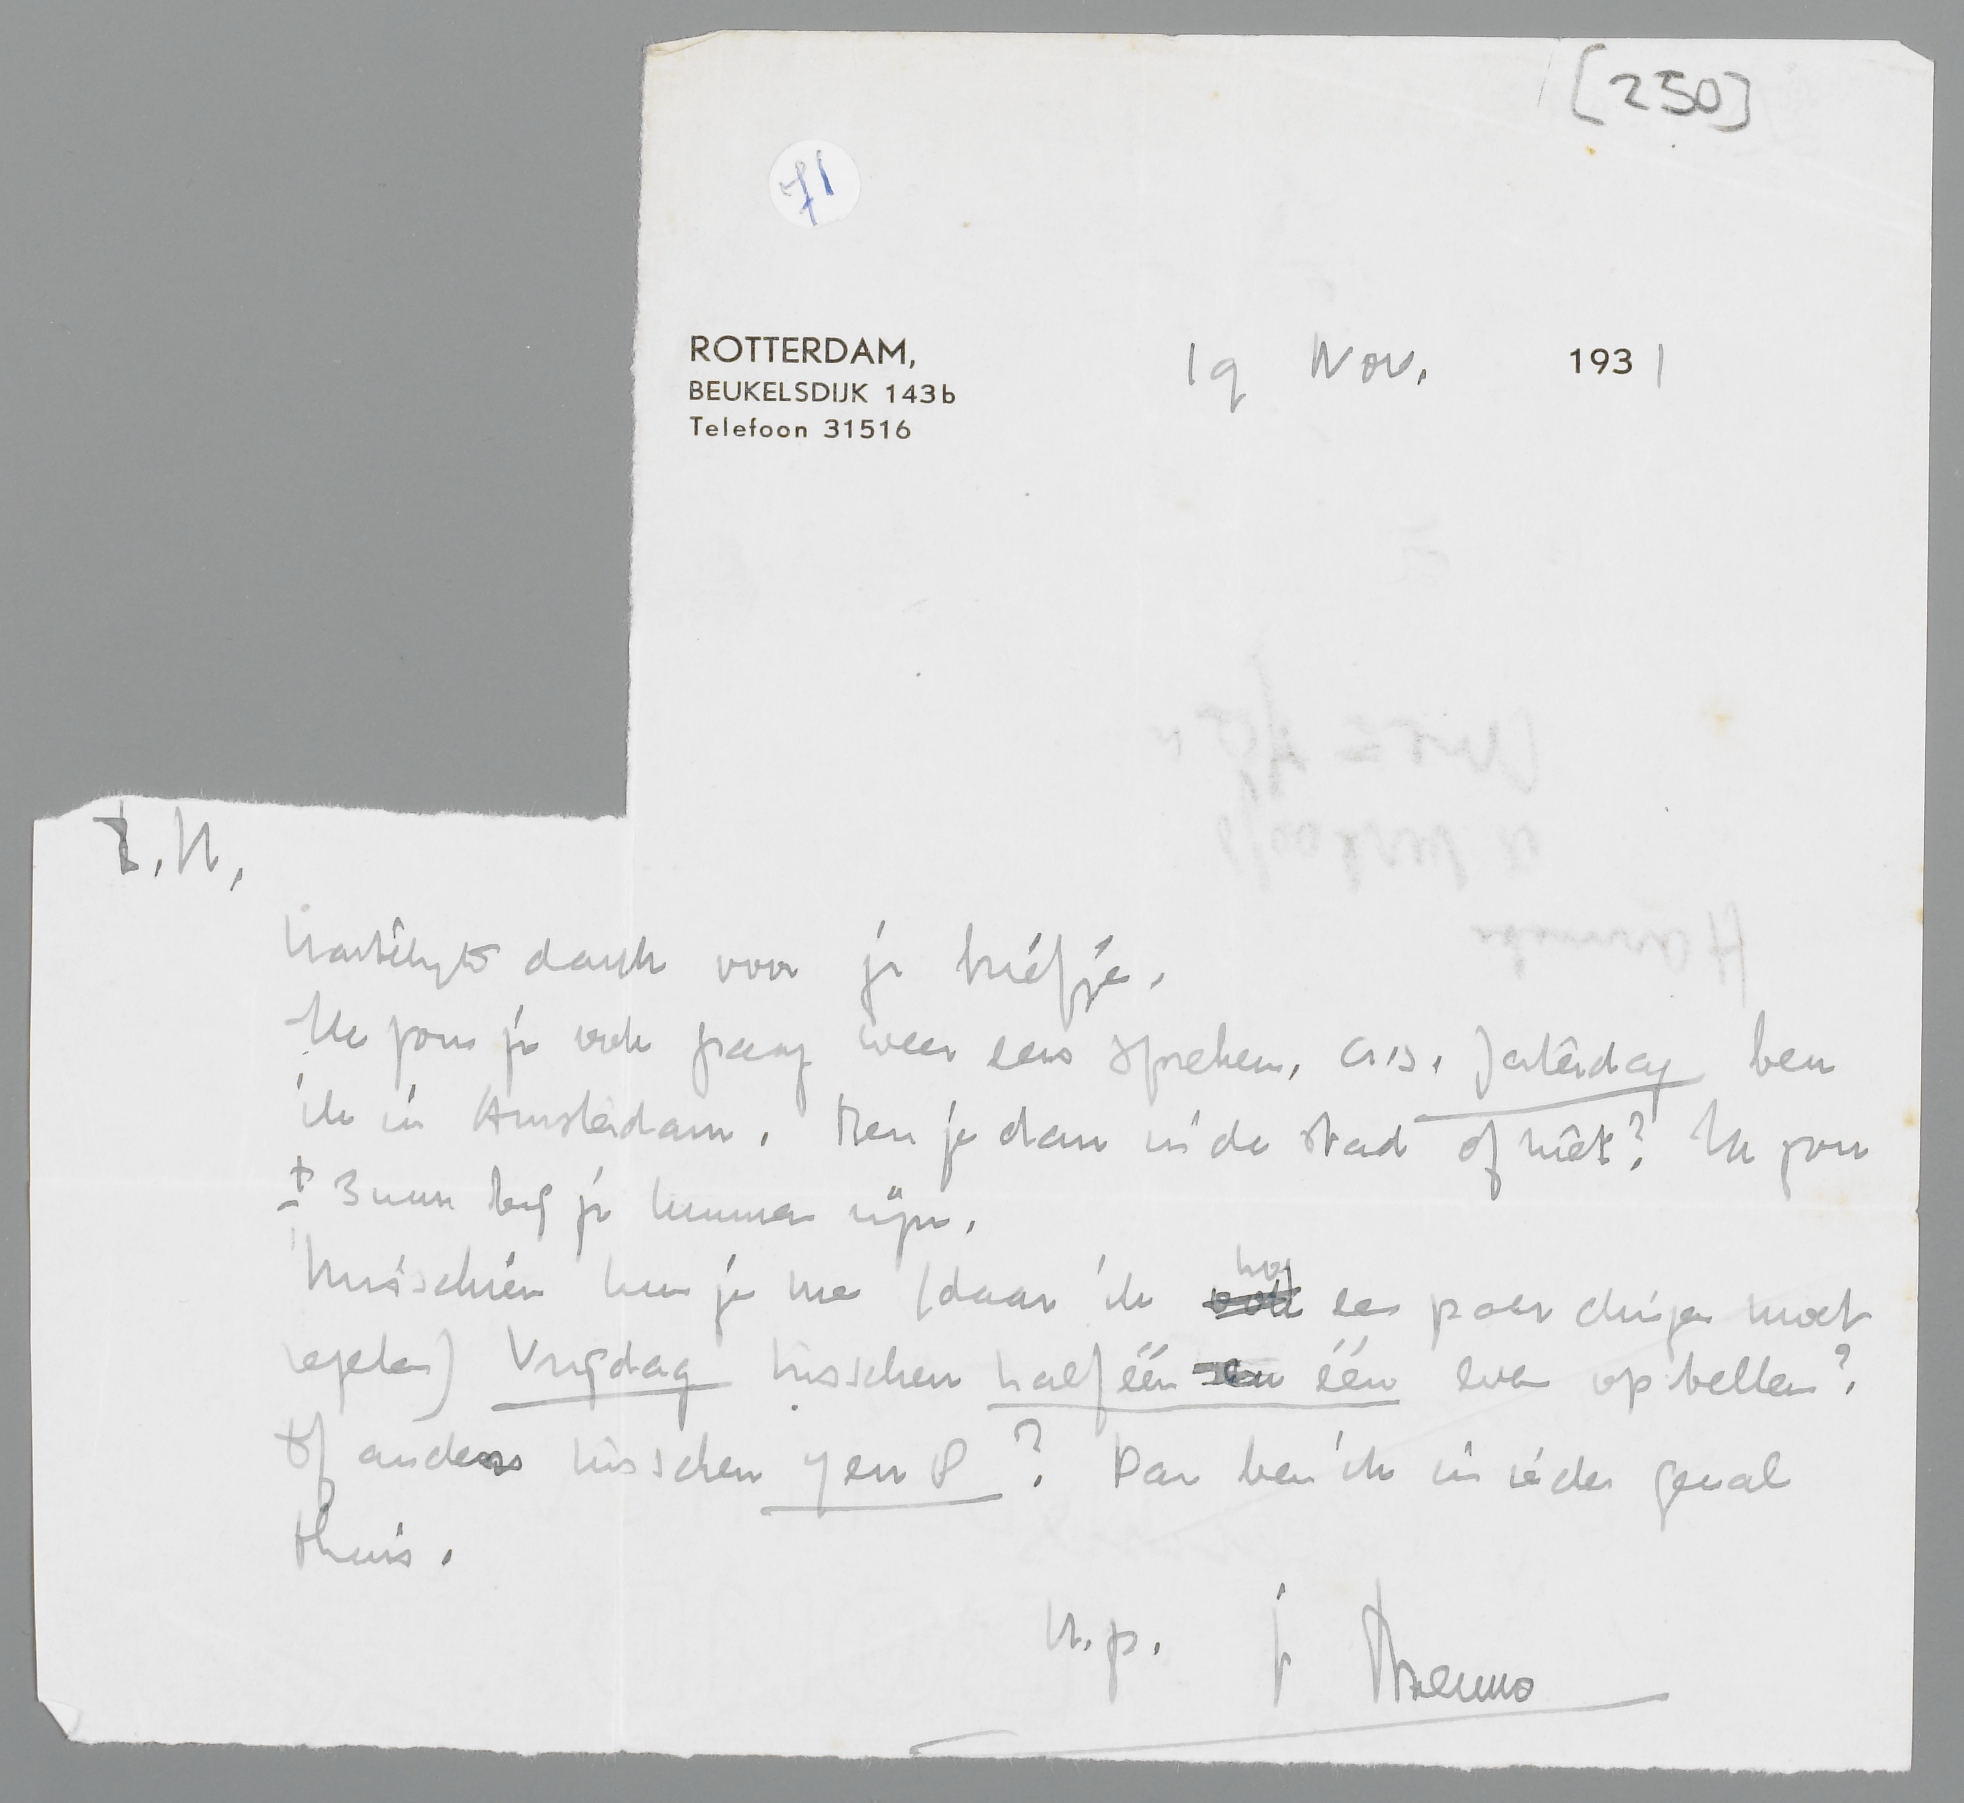 [250]
71
ROTTERDAM,
BEUKELSDIJK 143b
Telefoon 31516
19 Nov. 1931
Hartelijk dank voor je briefje.
Ik zou je ook graag weer eens spreken. a.s. Zaterdag ben
ik in Amsterdam. Ben je dan in de stad of niet? Ik zou
± 3 uur bij je kunnen zijn.
Misschien kun je me (daar ik nog een paar dingen moet
regelen) Vrijdag tusschen half één en één even opbellen?
Of anders tusschen 7 en 8? Dan ben ik in ieder geval
thuis.
h.gr. je Menno